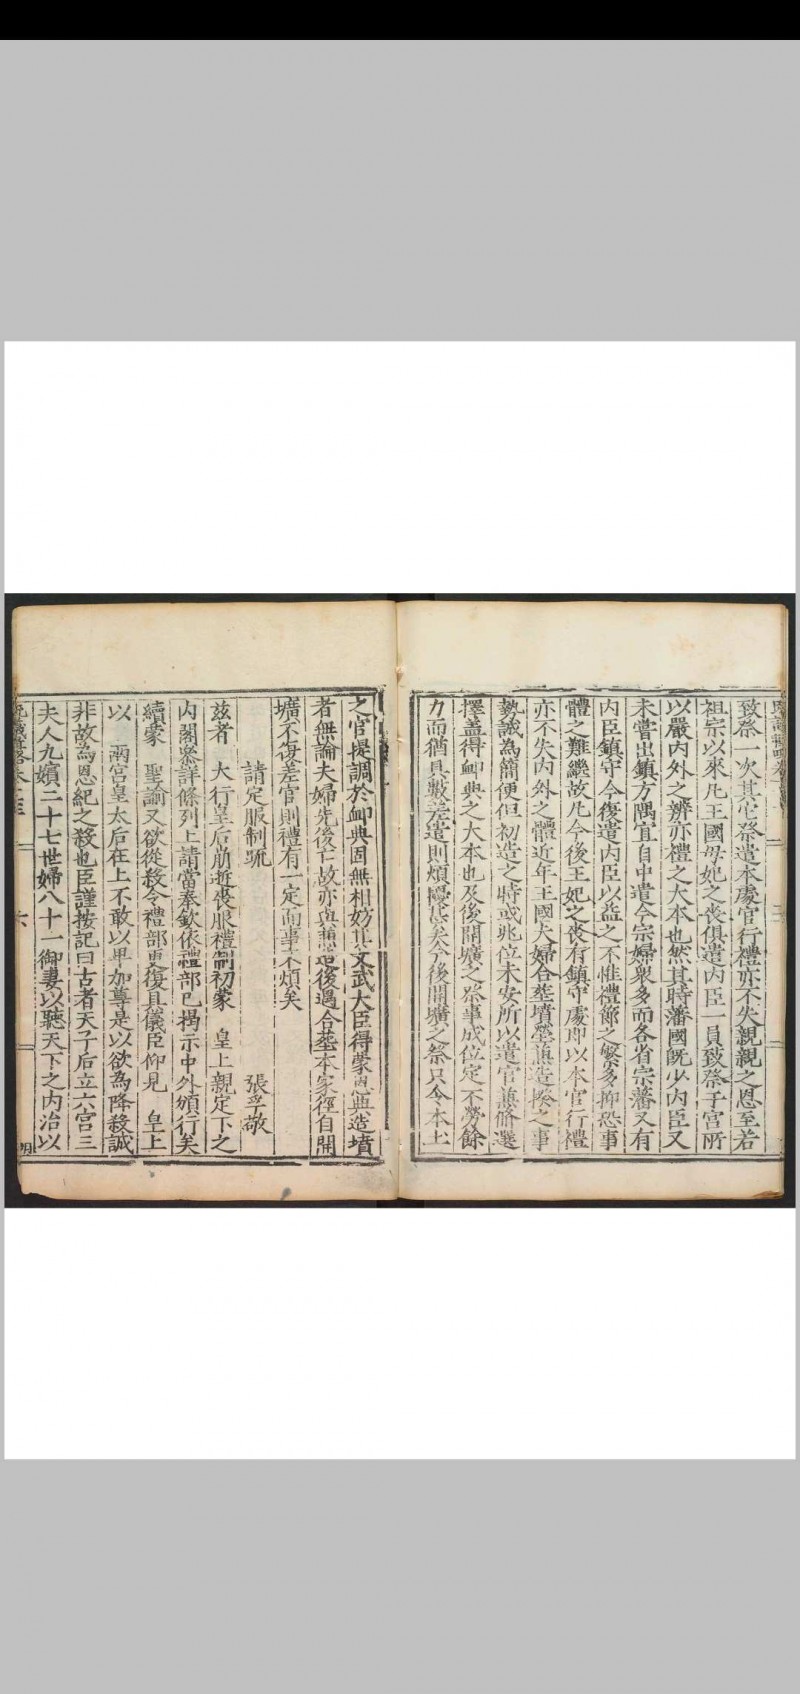 致祭一次其余祭遣本處官行禮亦不失親親之恩至若
祖宗以來凡王國母妃之喪俱遣内臣一員致祭于宮所
以嚴内外之辨亦禮之大本也然其時藩國旣少内臣又
未嘗出鎮方隅宜自中遣今宗婦衆多而各省宗藩又有
内臣鎮守今復遣内臣以益之不惟禮節之繁多抑恐事
體之難繼故凡今後王妃之喪有鎮守處即以本官行禮
亦不失内外之體近年王國夫婦合塟墳塋兼造揆之事
勢誠為簡便但初造之時或兆位未安所以遣官兼俻選
擇盖得卹典之大本也及後開壙之祭事成位定不勞餘
力而猶具數差遣則煩擾甚矣今後開壙之祭只令本土
之官提調於卹典固無相妨其文武大臣得蒙恩與造墳
者無論夫婦先後亡故亦與兼造後遇合塟本家徑自開
壙不復差官則禮有一定而事不煩矣
請定服制䟽 張孚敬
兹者 大行皇后崩逝喪服禮制初蒙 皇上親定下之
内閣叅詳條列上請當奉欽依禮部已揭示中外頒行矣
續蒙 聖諭又欲從殺令禮部更復具儀臣仰見 皇上
以 兩宮皇太后在上不敢以卑加尊是以欲為降殺誠
非故為恩紀之殺也臣謹按記曰古者天子后立六宮三
夫人九嬪二十七世婦八十一御妻以聽天下之内治以